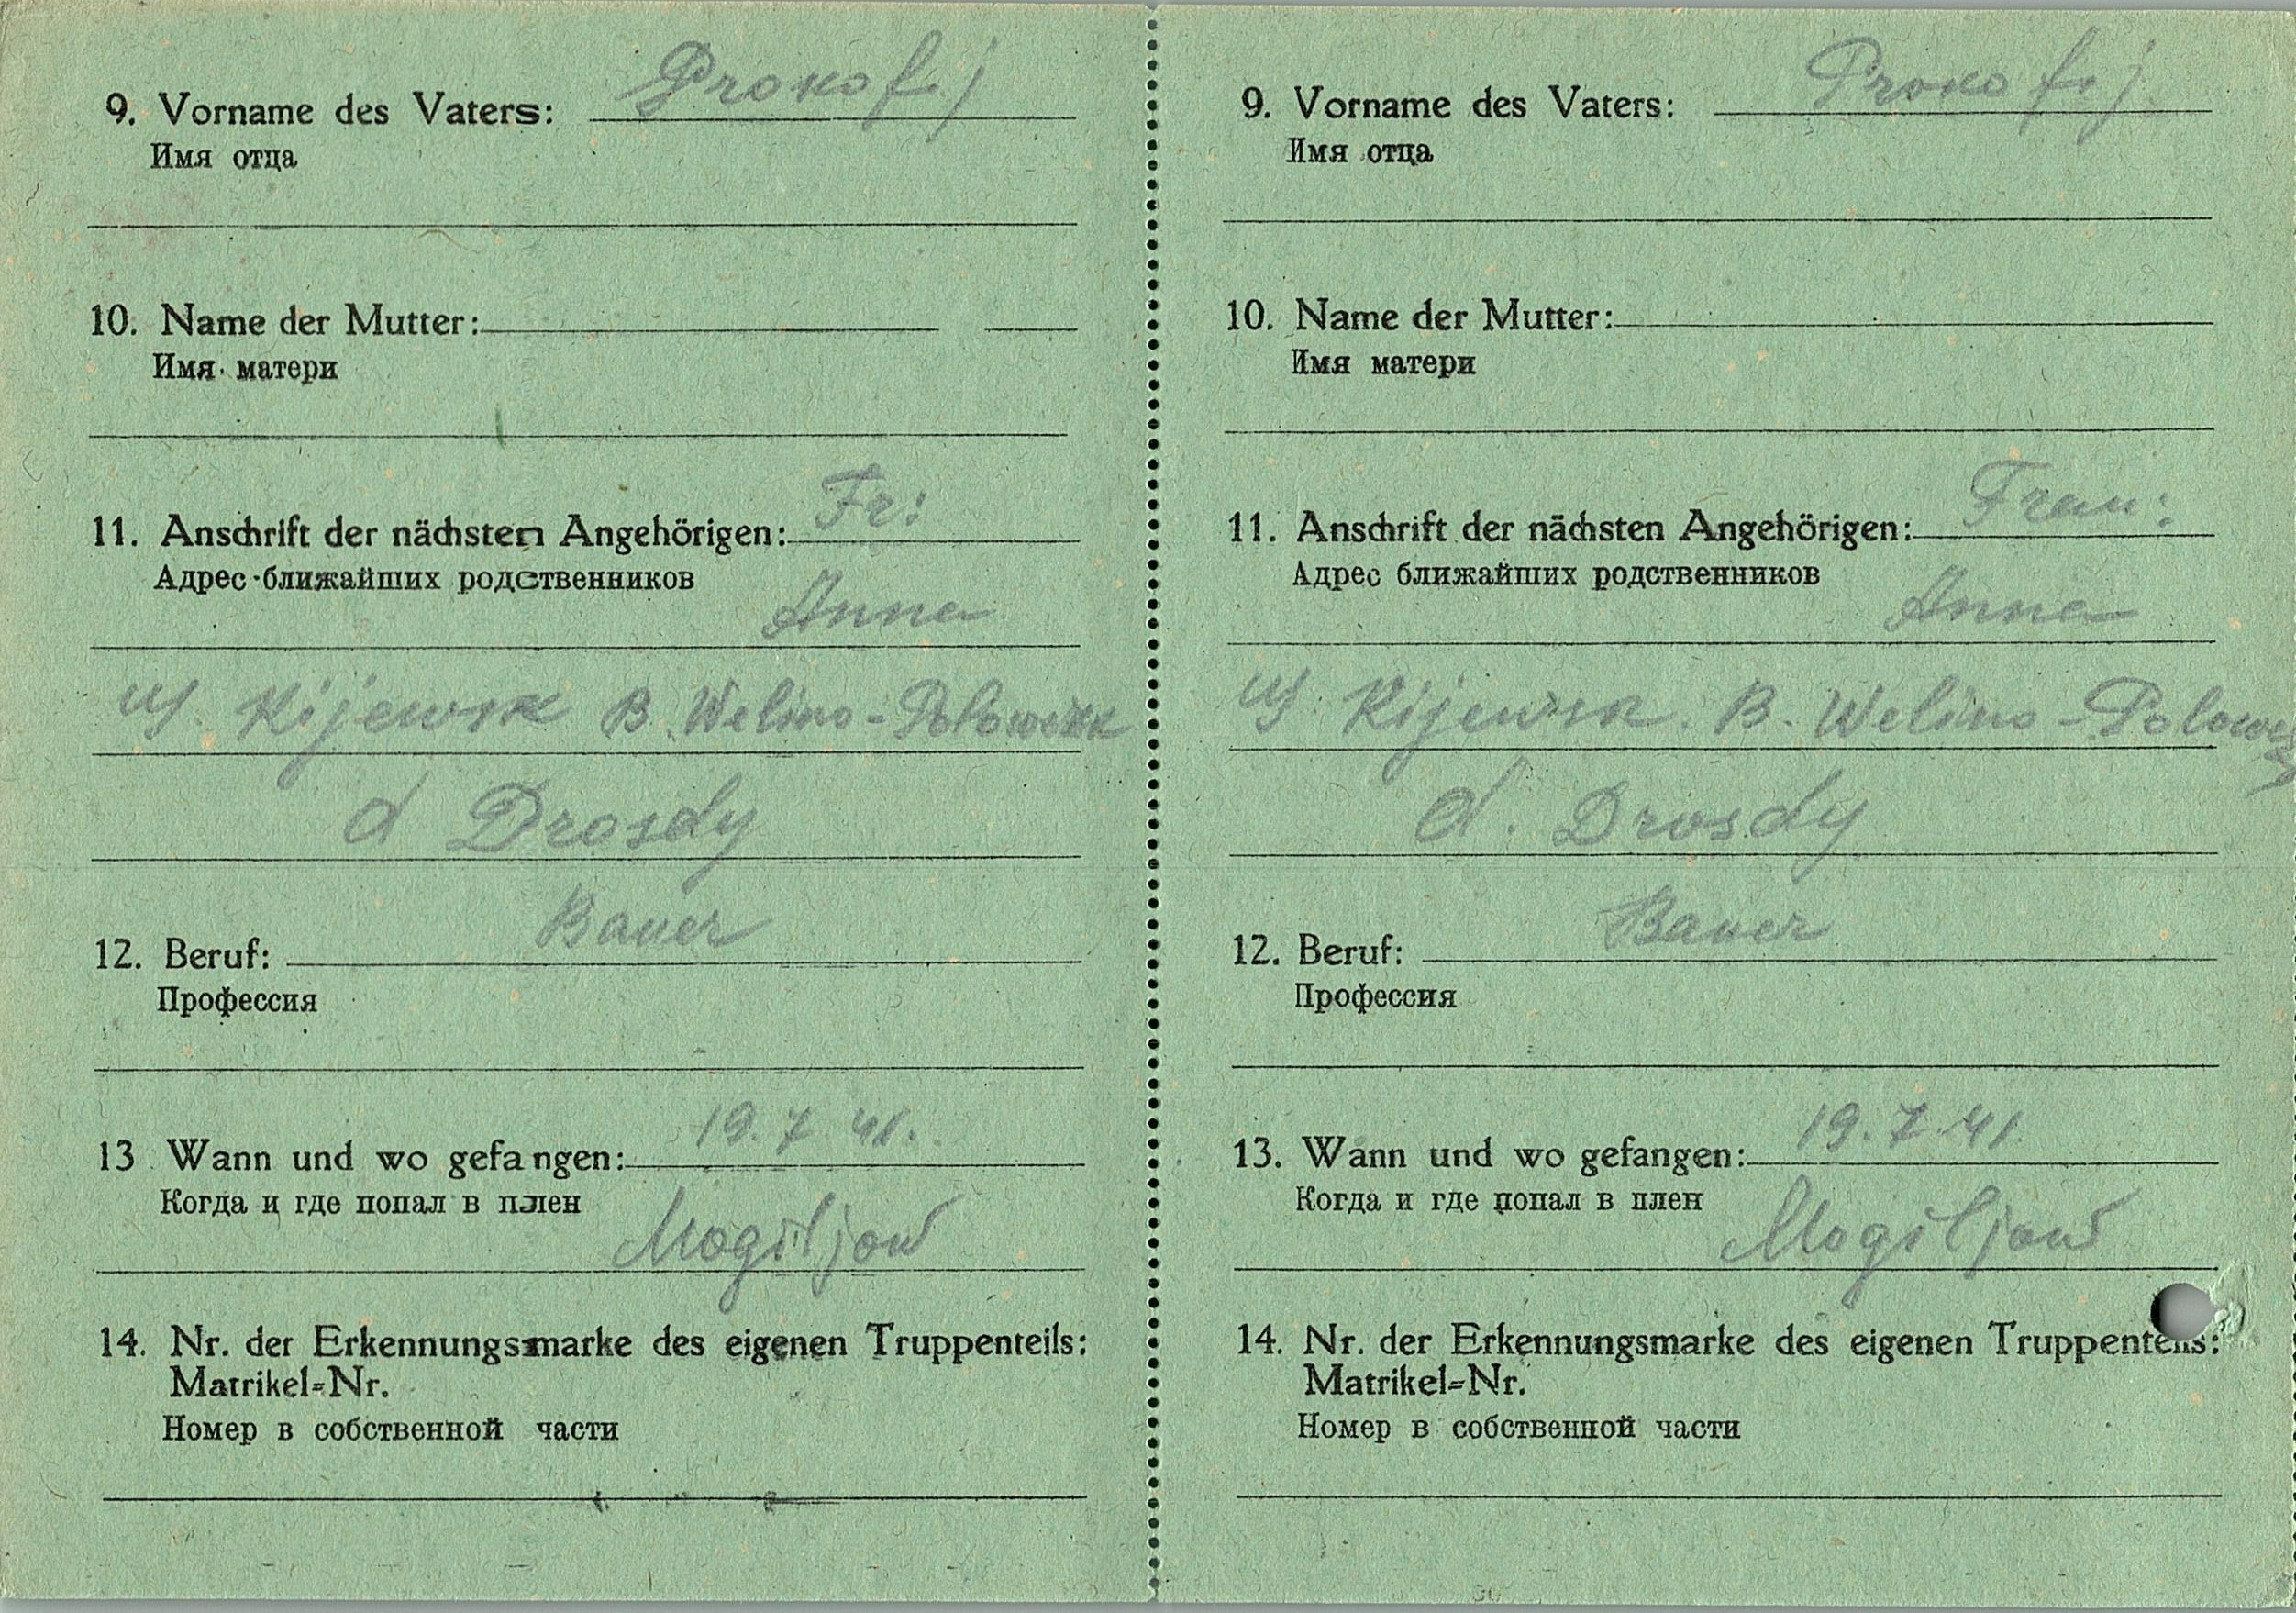 9. Vorname des Vaters: Prokofij
Имя отца
10. Name der Mutter:
Имя матери
11. Anschrift der nächsten Angehörigen: Fr:
Адрес ближайших родственников
Anna
Kijewsk B. Welino-Polowezk
d Drosdy
Bauer
12. Beruf:
Профессия
19.7 41.
13 Wann und wo gefangen:
Когда и где попал в плен
Mogiljow
14. Nr. der Erkennungsmarke des eigenen Truppenteils:
Matrikel=Nr.
Номер в собственной части
9. Vorname des Vaters: Prokofij
Имя отца
10. Name der Mutter:
Имя матери
11. Anschrift der nächsten Angehörigen: Frau:
Адрес ближайших родственников
Anna
Kijewsk. B. Welino-
d. Drosdy
Bauer
12. Beruf:
Профессия
19.7.41
13. Wann und wo gefangen:
Когда и где попал в плен
Mogiljow
14. Nr. der Erkennungsmarke des eigenen Truppenteils:
Matrikel=Nr.
Номер в собственной части